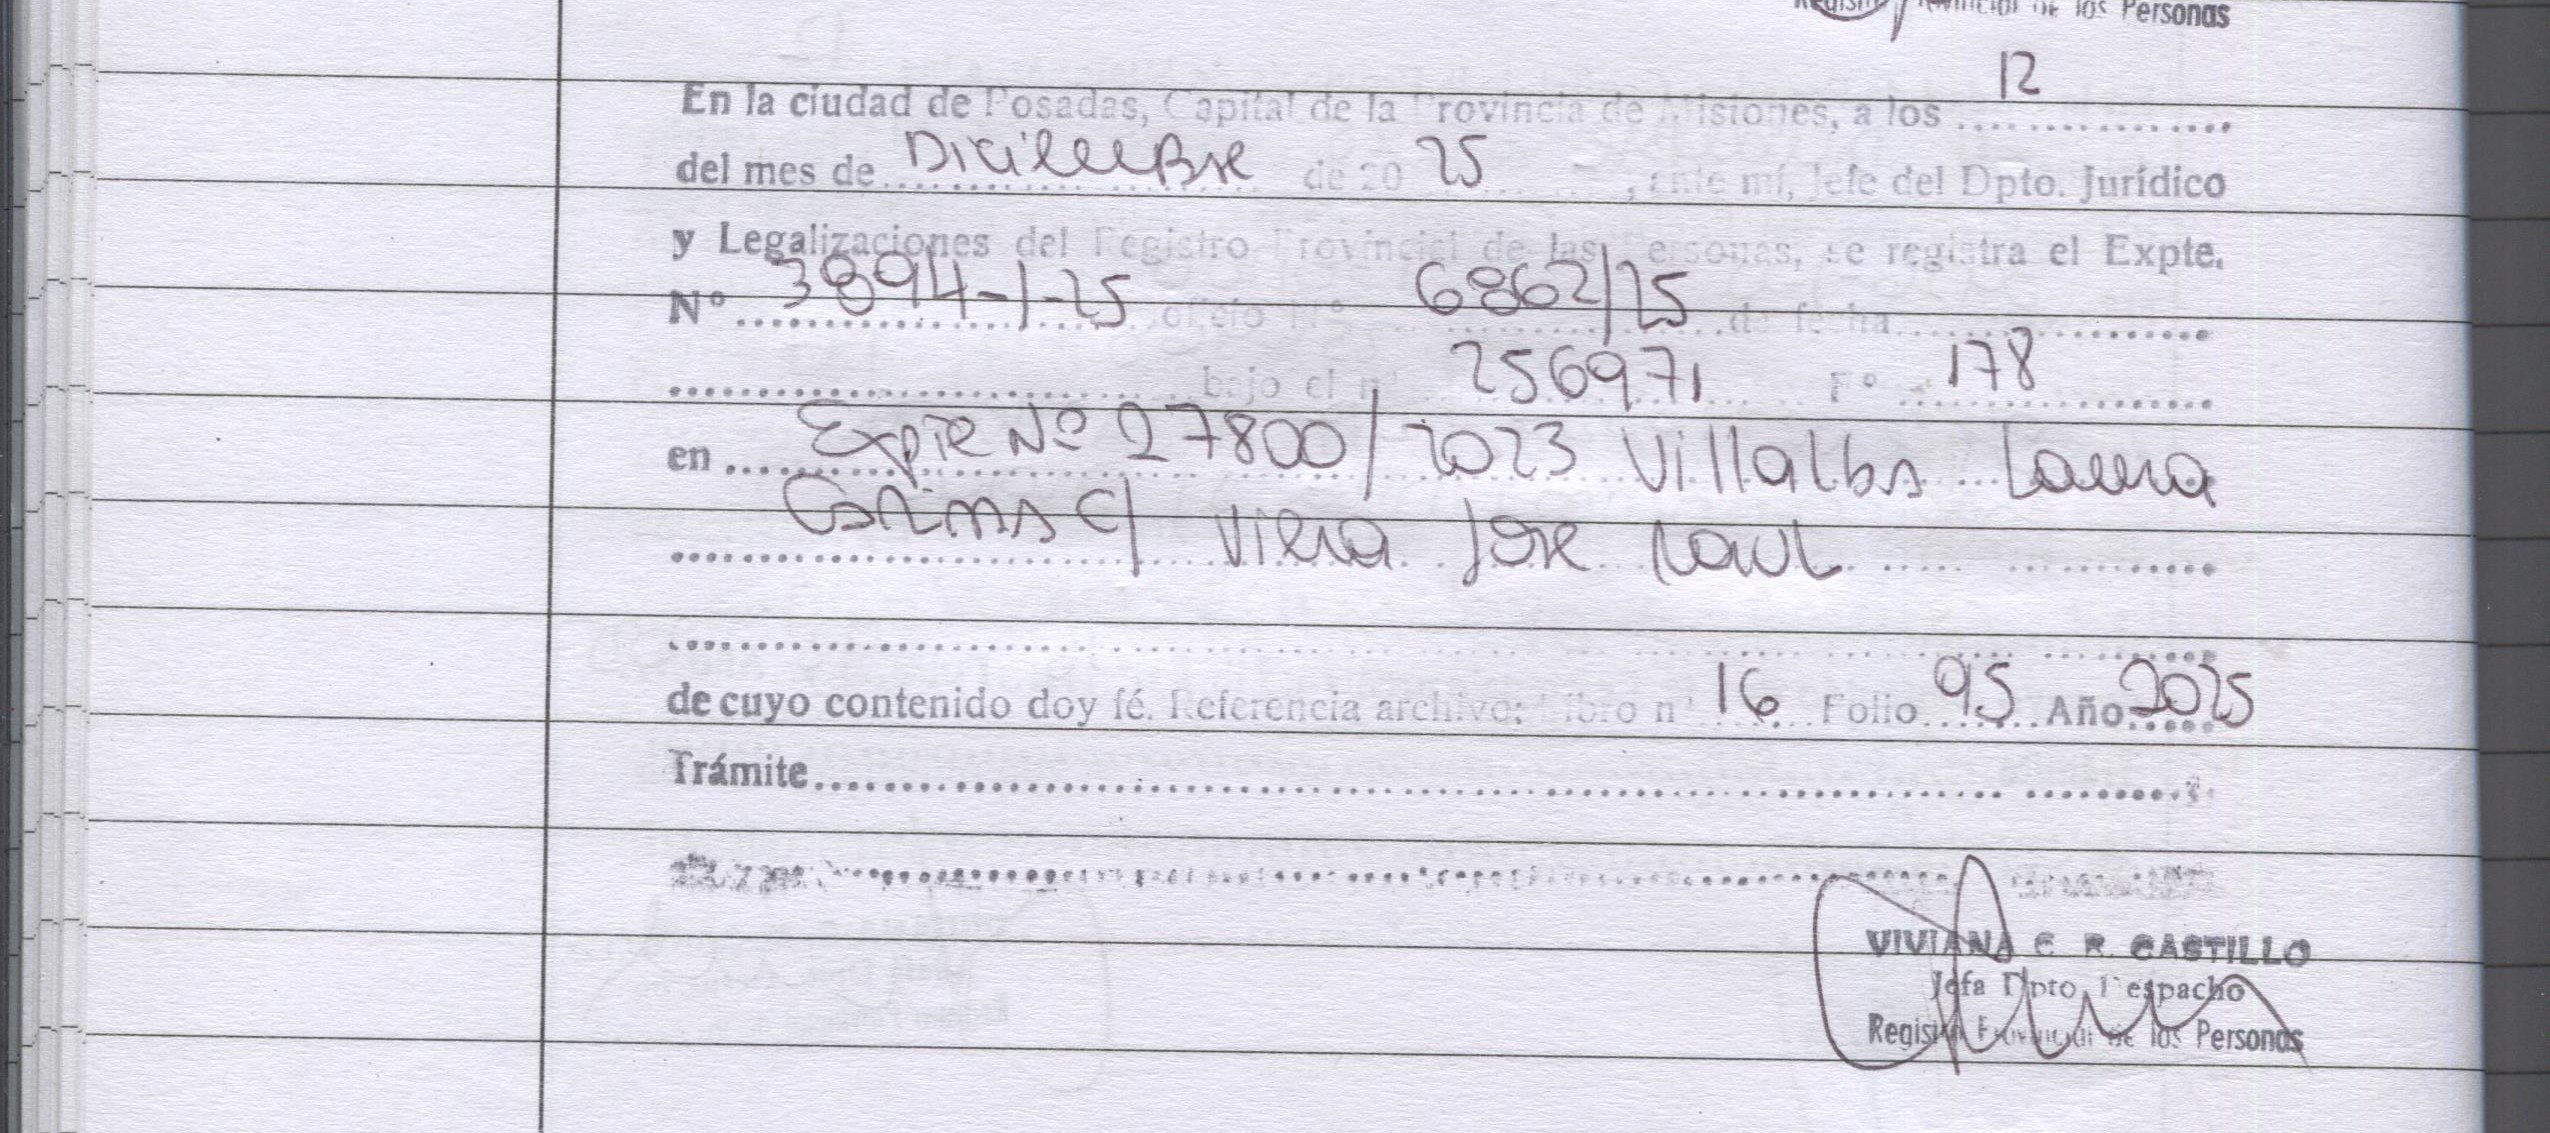 Registro Provincial de las Personas
12
En la ciudad de Posadas, Capital de la Provincia de Misiones, a los ................
del mes de Diciembre de 20 25 , ante mí, Jefe del Dpto. Jurídico
y Legalizaciones del Registro Provincial de las Personas, se registra el Expte.
N° 3894-1-25 oficio N° 6862/25 de fecha ................
................ bajo el n° 256971 F° 178
en Expte Nº 27800/2023 Villalba Laura
Carina c/ Viera Jose Raul
................
de cuyo contenido doy fé. Referencia archivo: Libro n° 16 Folio 95 Año 2025
Trámite................
VIVIANA C. R. CASTILLO
Jefa Dpto. Despacho
Registro Provincial de las Personas